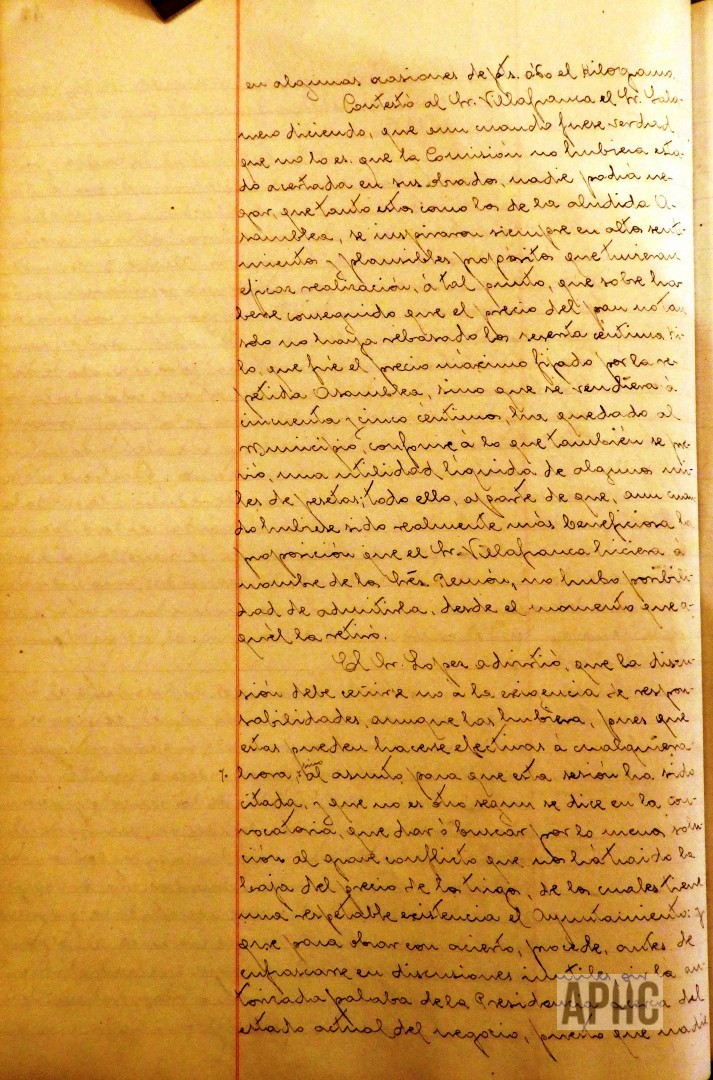 en algunas ocasiones de pts. 0'60 el Kilogramo.
Contestó al Sr. Villafranca el Sr. Gala-
mero diciendo, que aun cuando fuese verdad
que no lo es. que la Comisión no hubiera esta-
do acertada en sus obrados, nadie podrá ne-
gar, que tanto estos como los de la aludida A-
samblea, se inspiraron siempre en altos senti-
mientos y plausibles propósitos que tuvieron
eficaz realización, á tal punto, que sobre ha-
berse conseguido que el precio del pan no tan
solo no haya rebasado los sesenta céntimos ki-
lo, que fué el precio máximo fijado por la re-
petida Asamblea, sino que se vendiera á
cincuenta y cinco céntimos, ha quedado al
Municipio, conforme á lo que también se pre-
vió, una utilidad líquida de algunos mi-
les de pesetas; todo ello, aparte de que, aun cuan-
do hubiese sido realmente más beneficiosa la
proposición que el Sr. Villafranca hiciera á
nombre de los Sres. Remón, no hubo posibili-
dad de admitirla, desde el momento que a-
quél la retiró.
El Sr. Lopez advirtió, que la discu-
sión debe ceñirse no á la exigencia de respon-
sabilidades, aunque las hubiera, pues que
estas pueden hacerse efectivas á cualquiera
hora, sino al asunto para que esta sesión ha sido
citada, y que no es otro segun se dice en la con-
vocatoria, que dar ó buscar por lo menos solu-
ción al grave conflicto que nos há traido la
baja del precio de los trigos, de los cuales tiene
una respetable existencia el Ayuntamiento: y
que para obrar con acierto, procede, antes de
enfrascarse en discusiones inutiles oir la au-
torizada palabra de la Presidencia acerca del
estado actual del negocio, puesto que nadie
APHC